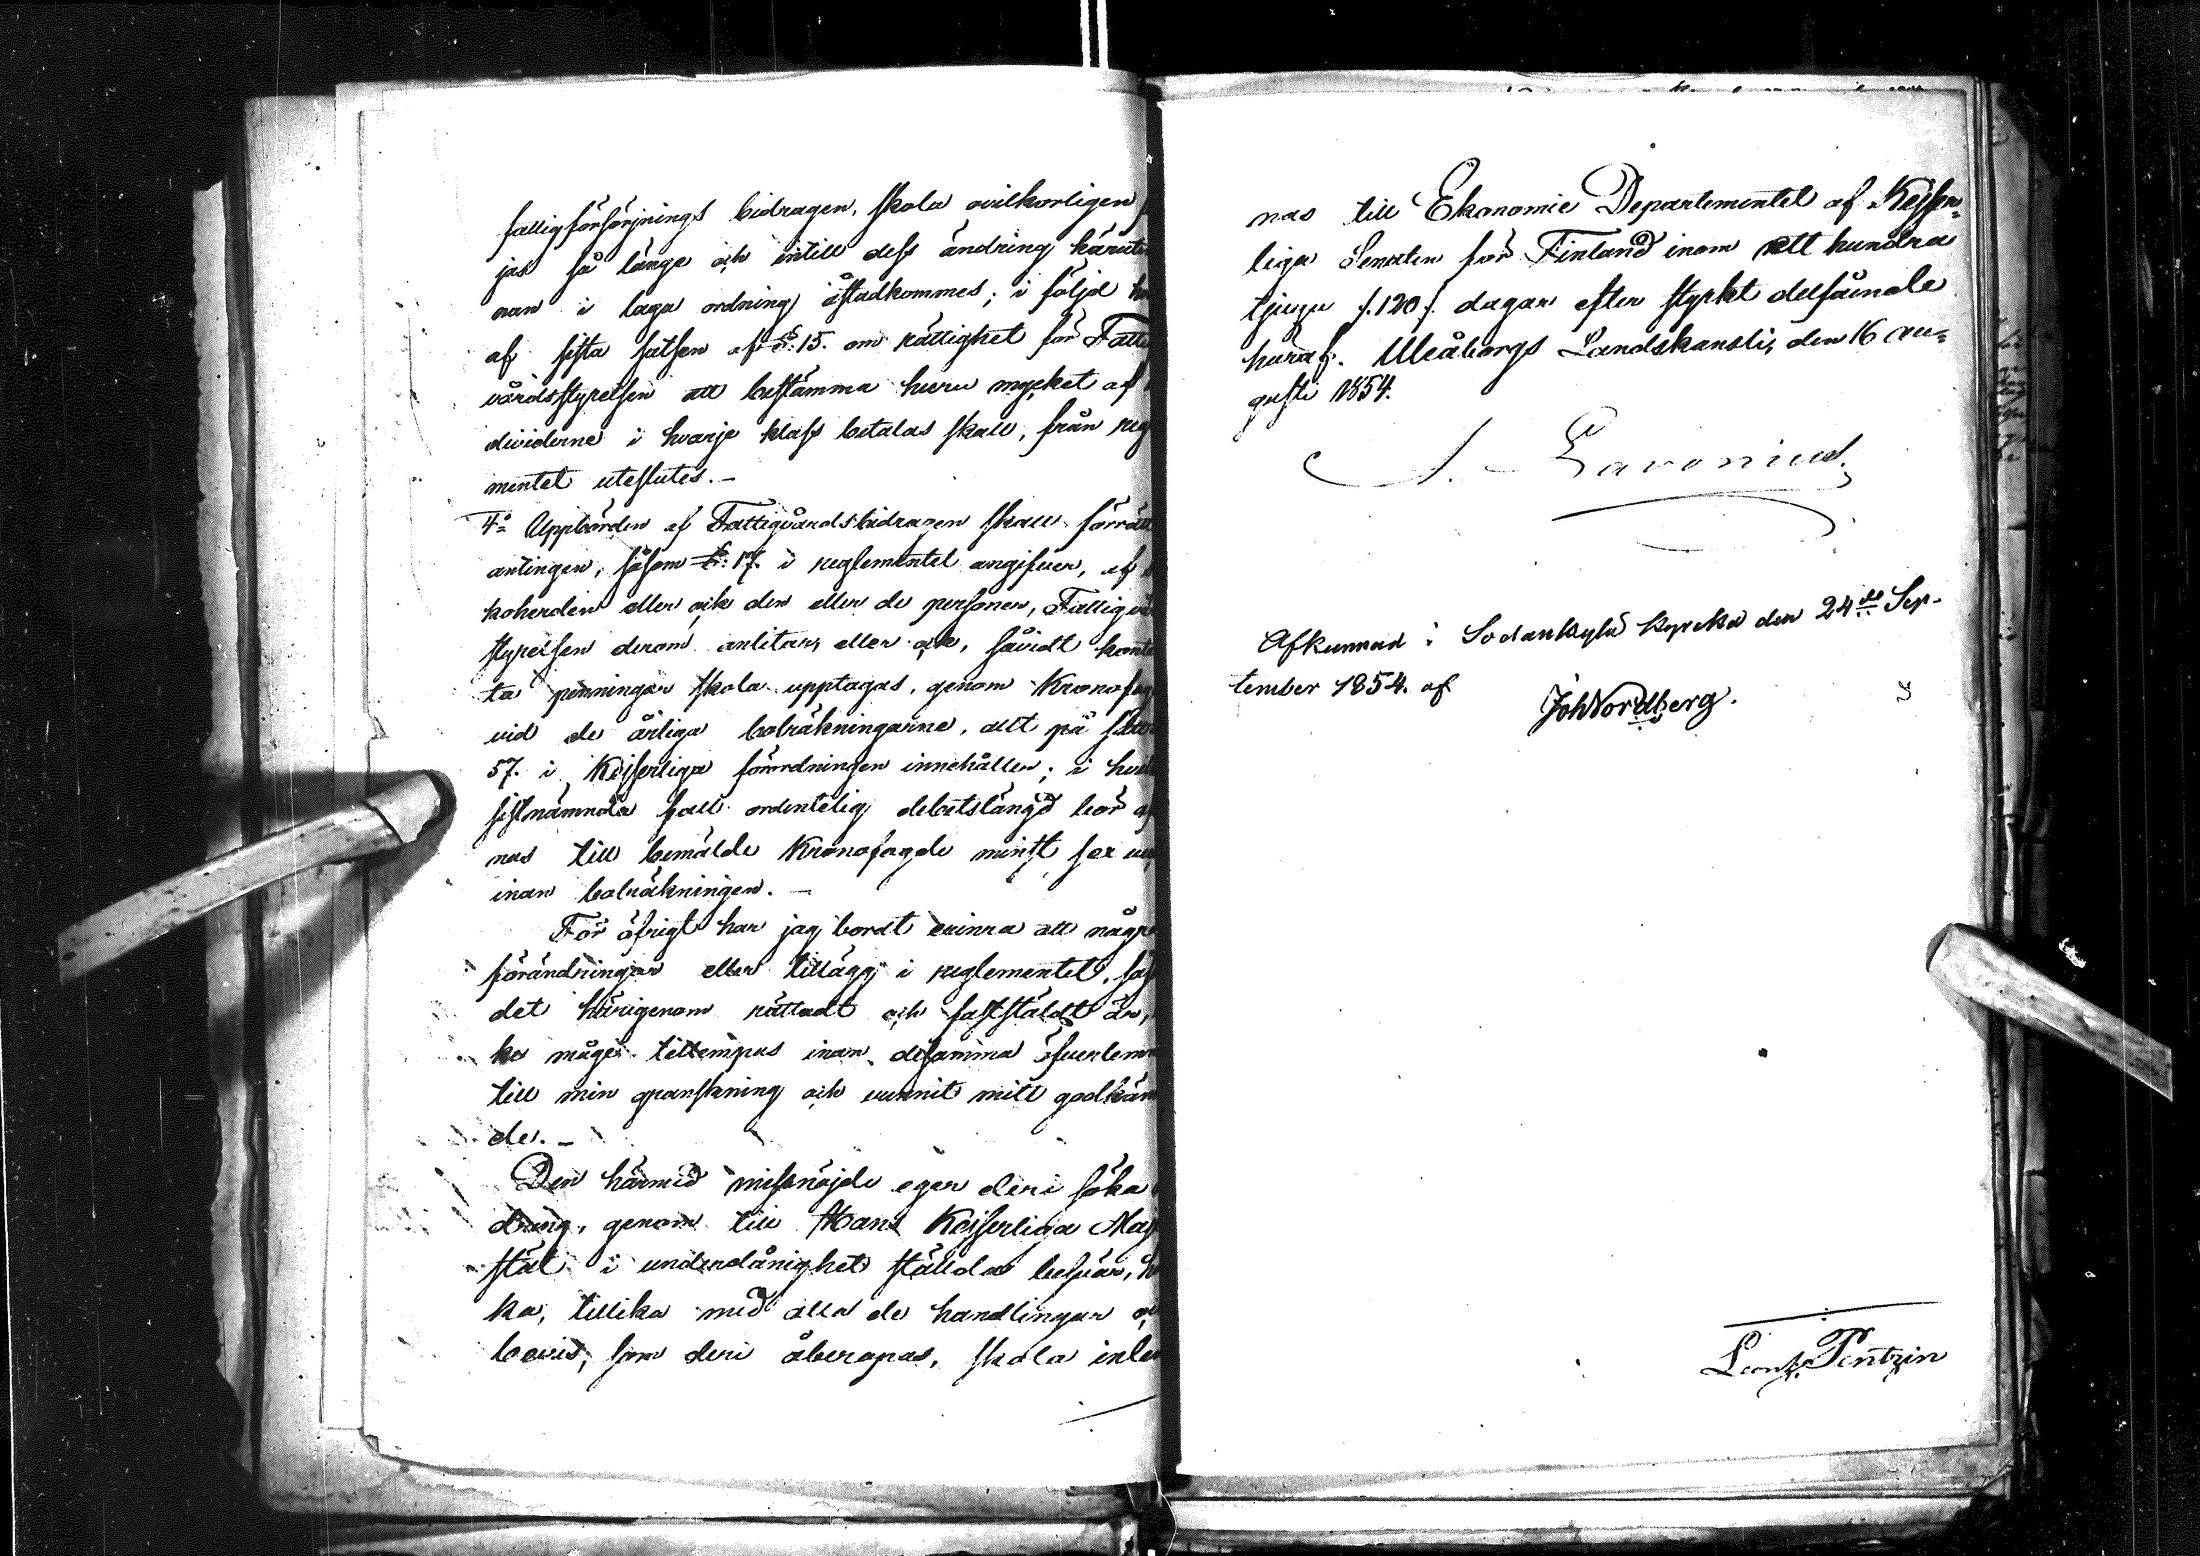 fattigförsörjnings bidragen, skola ovilkorligen
jas så länge och intill dess ändring härut
nan i laga ordning åstadkommes; i följd
af sista satsen af §. 15. om rättighet för Fatt
vårdsstyrelsen att bestämma huru mycket af
dividerne i hvarje klass betalas skall, från reg
mentet uteslutes. —
4:o Uppbörden af Fattigvårdsbidragen skall förrätt
antingen, såsom §: 17. i reglementet angifver, af
koherden eller ock den eller de personer, Fattigvå
styrelsen derom anlitar, eller ock, såvidt kont
ta penningar skola upptagas, genom Kronofog
vid de årliga bolräkningarne, allt på sätt
57. i Kejserliga förordningen innehåller; i hvil
sistnämnda fall ordentelig debetslängd bör
nas till bemälde Kronofogde minst sex
inan bolräkningen. —
För öfrigt har jag bordt erinra att någr
förändringar eller tillägg i reglementet, så
det härigenom rättadt och fastställdt är,
ka måge tillempas inan desamma öfverlem
till min granskning och vunnit mitt godkän
de. —
Den härmed missnöjde eger deri söka
dring, genom till Hans Kejserliga Maj
stät i underdånighet ställda besvär,
ka, tillika med alla de handlingar
bevis, som deri åberopas, skola inle
nas till Ekonomie Departementet af Kejser=
liga Senaten för Finland inom ett hundra
tjugu /.120/. dagar efter styrkt delfående
häraf. Uleåborgs Landskansli, den 16 Au=
gusti 1854.
Lavonius
Afkunnad i Sodankylä kyrcka den 24:de Sep-
tember 1854. af
Joh Nordberg.
Pentzin